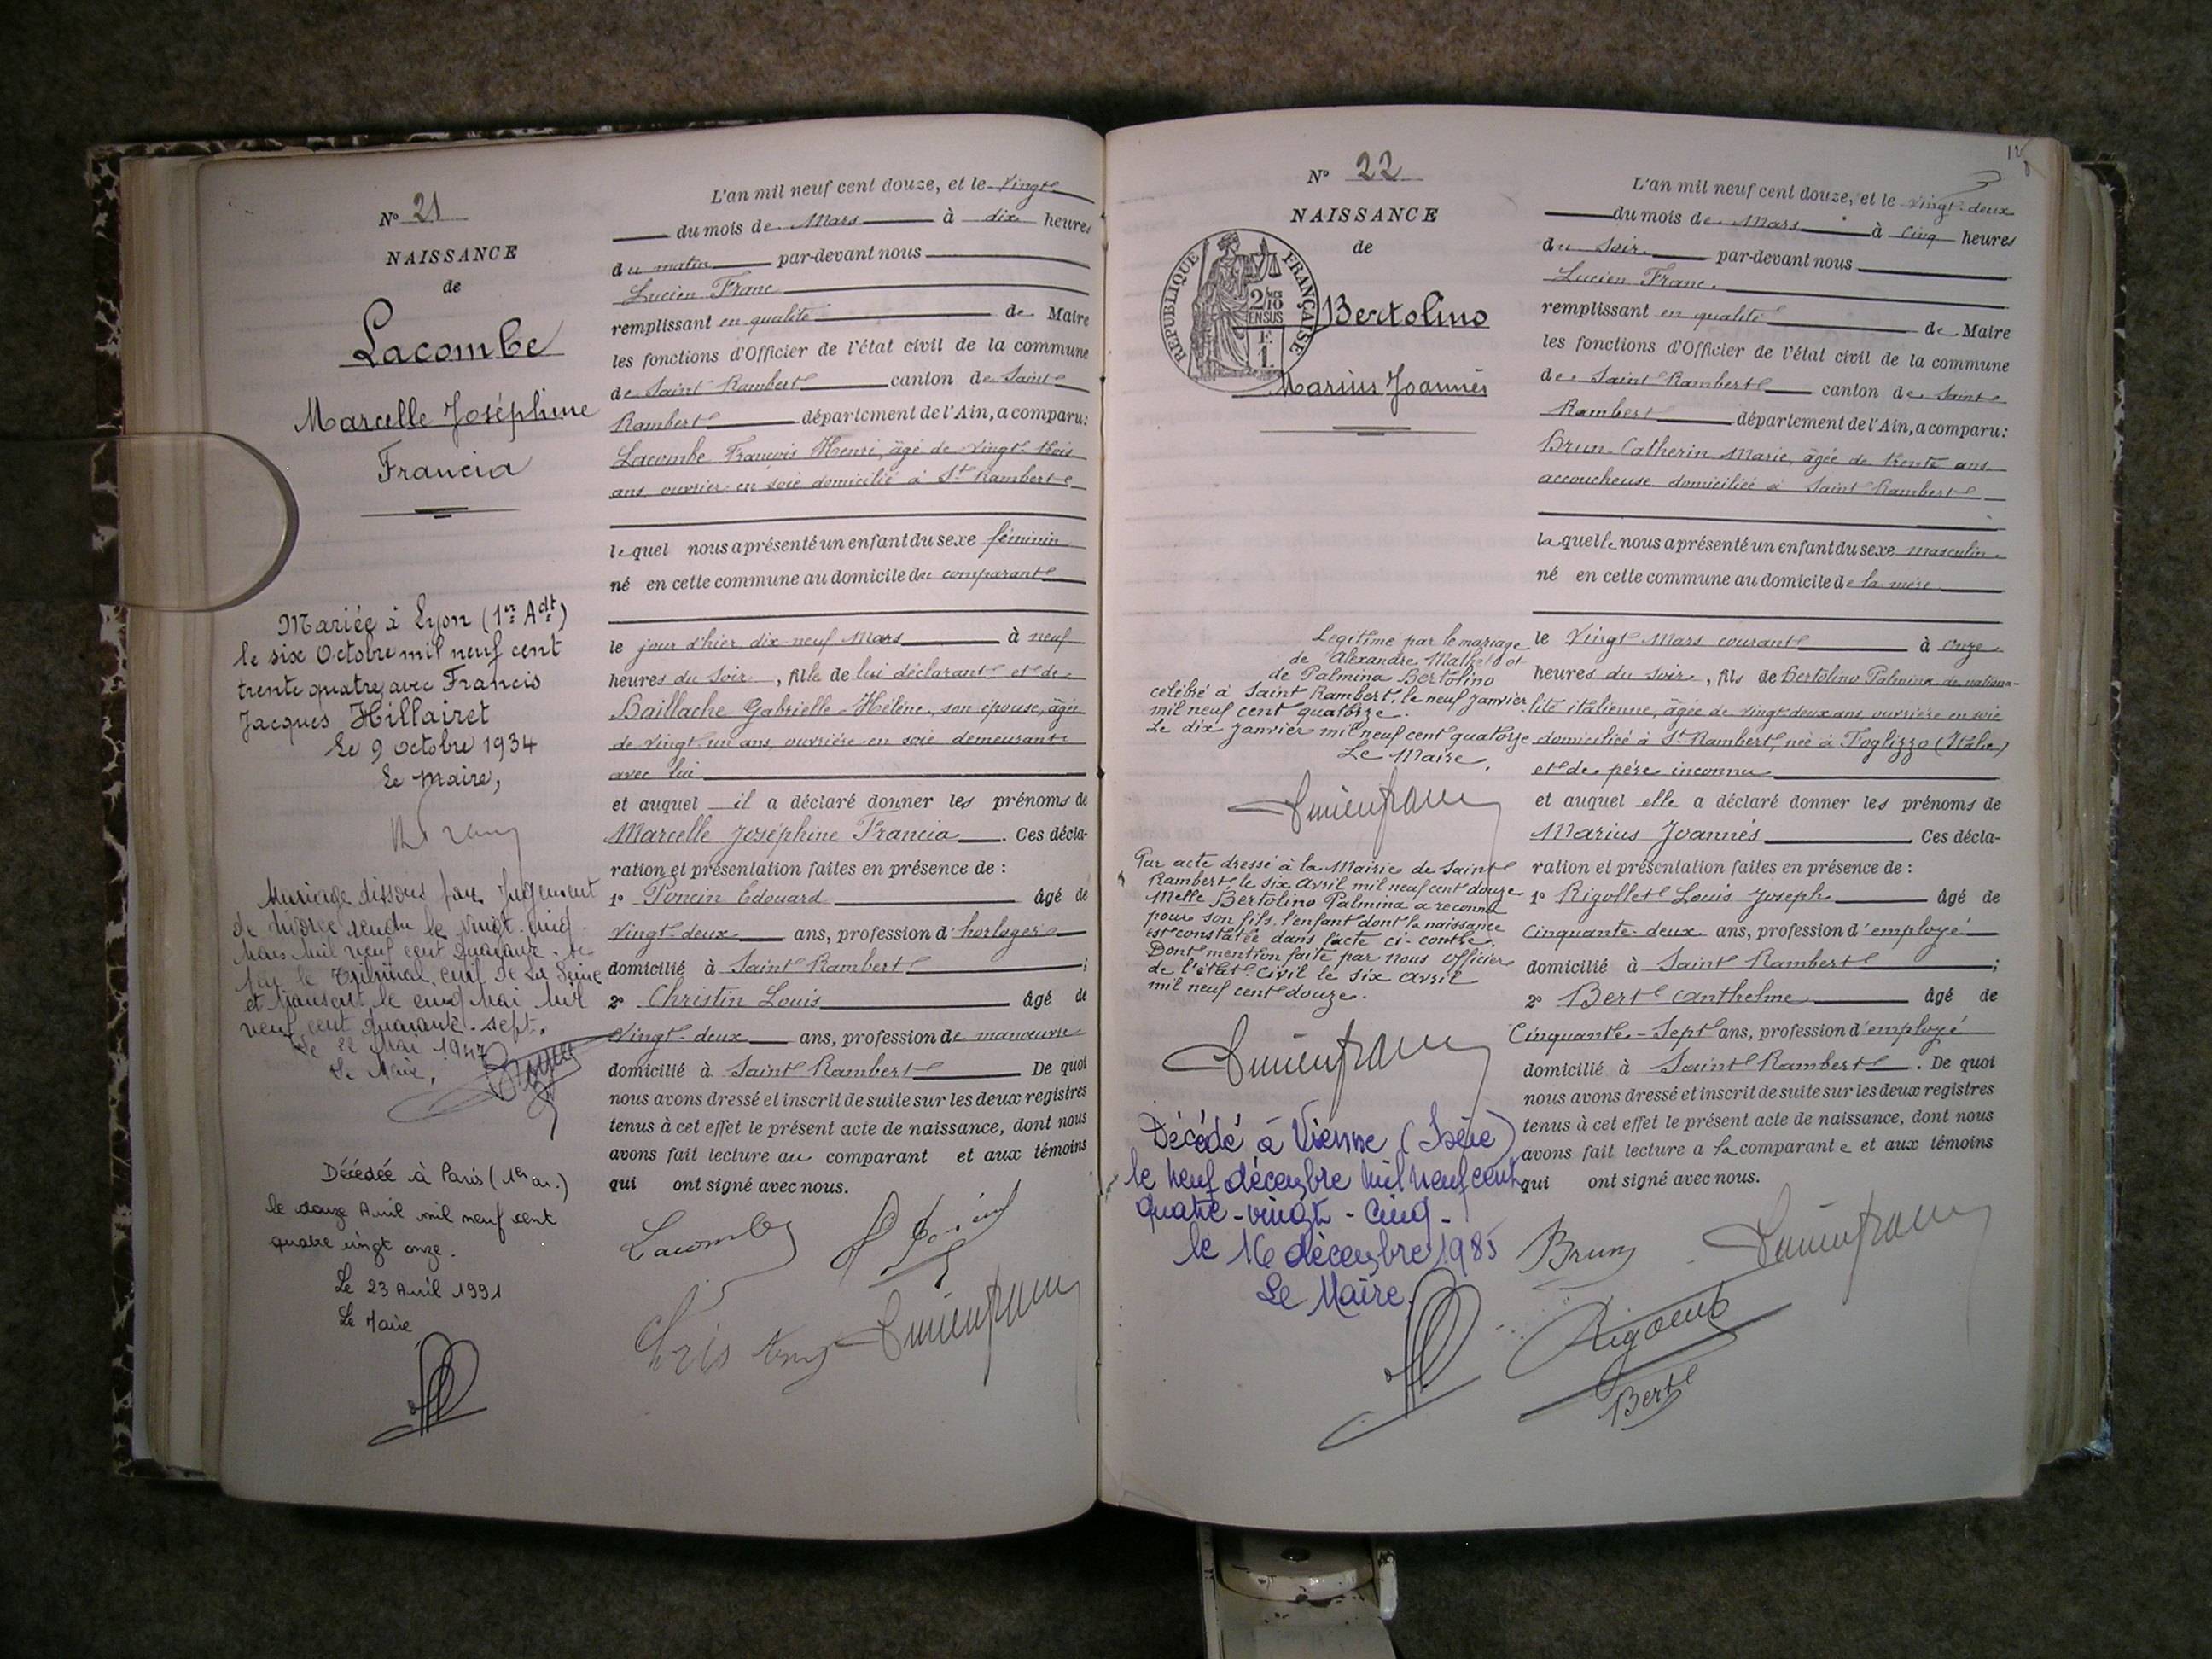 N° 21
NAISSANCE
de
Lacombe
Marcelle Joséphine
Francia
Mariée à Lyon (1er Adt)
le six Octobre mil neuf cent
trente quatre avec Francis
Jacques Hillairet
Le 9 Octobre 1934
Le Maire,
Mariage dissous par Jugement
de divorce rendu le vingt-cinq
Mars mil neuf cent quarante-
par le Tribunal civil de la Seine
et transcrit le cinq Mai mil
neuf cent quarante-sept.
Le 22 Mai 1947
Le Maire,
Décédée à Paris (1er ar.)
le douze Avril mil neuf cent
quatre vingt onze.
Le 23 Avril 1991
Le Maire
L'an mil neuf cent douze, et le vingt
du mois de Mars à dix heures
du matin par-devant nous
Lucien Franc
remplissant en qualité de Maire
les fonctions d'Officier de l'état civil de la commune
de Saint Rambert canton de Saint
Rambert département de l'Ain, a comparu:
Lacombe François Henri, âgé de vingt-trois
ans, ouvrier en soie domicilié à St Rambert
lequel nous a présenté un enfant du sexe féminin
né en cette commune au domicile du comparant
le jour d'hier dix-neuf Mars à neuf
heures du soir, fille de lui déclarant et de
Baillache Gabrielle-Hélène, son épouse, âgée
de vingt-un ans, ouvrière en soie demeurant
avec lui
et auquel il a déclaré donner les prénoms de
Marcelle Joséphine Francia. Ces décla-
ration et présentation faites en présence de :
1° Poncin Edouard âgé de
vingt-deux ans, profession d'horloger
domicilié à Saint Rambert ;
2° Christin Louis âgé de
vingt-deux ans, profession de manœuvre
domicilié à Saint Rambert De quoi
nous avons dressé et inscrit de suite sur les deux registres
tenus à cet effet le présent acte de naissance, dont nous
avons fait lecture au comparant et aux témoins
qui ont signé avec nous.
Lacombe
N° 22
NAISSANCE
de
REPUBLIQUE FRANÇAISE
2/10
EN SUS
1 F.
Bertolino
Marius Joannès
Legitimé par le mariage
de Alexandre et
de Palmina Bertolino
célébré à Saint Rambert, le neuf Janvier
mil neuf cent quatorze.
Le dix Janvier mil neuf cent quatorze
Le Maire,
Par acte dressé à la Mairie de Saint
Rambert le six Avril mil neuf cent douze
Melle Bertolino Palmina a reconnu
pour son fils, l'enfant dont la naissance
est constatée dans l'acte ci-contre.
Dont mention faite par nous Officier
de l'état-Civil le six Avril
mil neuf cent douze.
Décédé à Vienne (Isère)
le neuf décembre mil neuf cent
quatre-vingt-cinq-
le 16 décembre 1985
Le Maire,
L'an mil neuf cent douze, et le vingt-deux
du mois de Mars à cinq heures
du soir par-devant nous
Lucien Franc.
remplissant en qualité de Maire
les fonctions d'Officier de l'état civil de la commune
de Saint Rambert canton de Saint
Rambert département de l'Ain, a comparu:
Brun Catherin Marie, âgée de trente ans
accoucheuse domiciliée à Saint Rambert
laquelle nous a présenté un enfant du sexe masculin
né en cette commune au domicile de la mère
le vingt Mars courant à onze
heures du soir, fils de Bertolino Palmina de nationa-
lité italienne, âgée de vingt deux ans, ouvrière en soie
domiciliée à St Rambert, née à Foglizzo (Italie)
et de père inconnu
et auquel elle a déclaré donner les prénoms de
Marius Joannès Ces décla-
ration et présentation faites en présence de :
1° Rigollet Louis Joseph âgé de
cinquante-deux ans, profession d'employé
domicilié à Saint Rambert ;
2° Bert Canthelme âgé de
Cinquante-sept ans, profession d'employé
domicilié à Saint Rambert. De quoi
nous avons dressé et inscrit de suite sur les deux registres
tenus à cet effet le présent acte de naissance, dont nous
avons fait lecture a la comparante et aux témoins
qui ont signé avec nous.
Brun
Bert